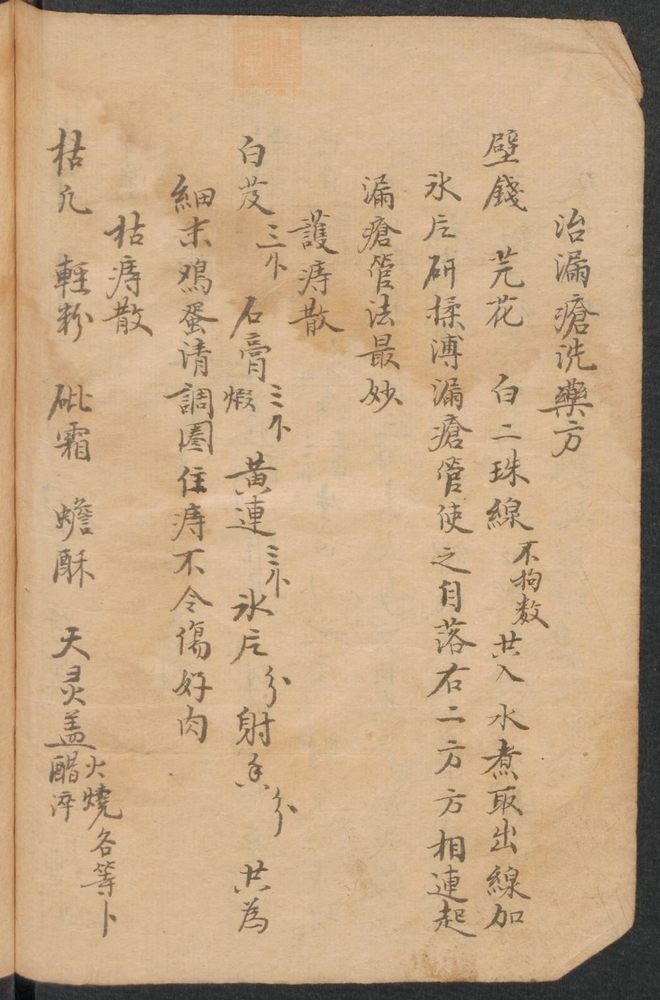 治漏瘡洗藥方
壁錢 芫花 白二珠線不拘数共入水煮取出線加
氷片研揉溥漏瘡管使之自落右二方方相連起
漏瘡管法最妙
護痔散
白芨三卜 石膏煅三卜 黄連三卜 氷片分 射香分 共為
細末鸡蛋清調圈住痔不令傷好肉
枯痔散
枯凢 輕粉 砒霜 蟾酥 天灵盖火燒醋淬各等卜